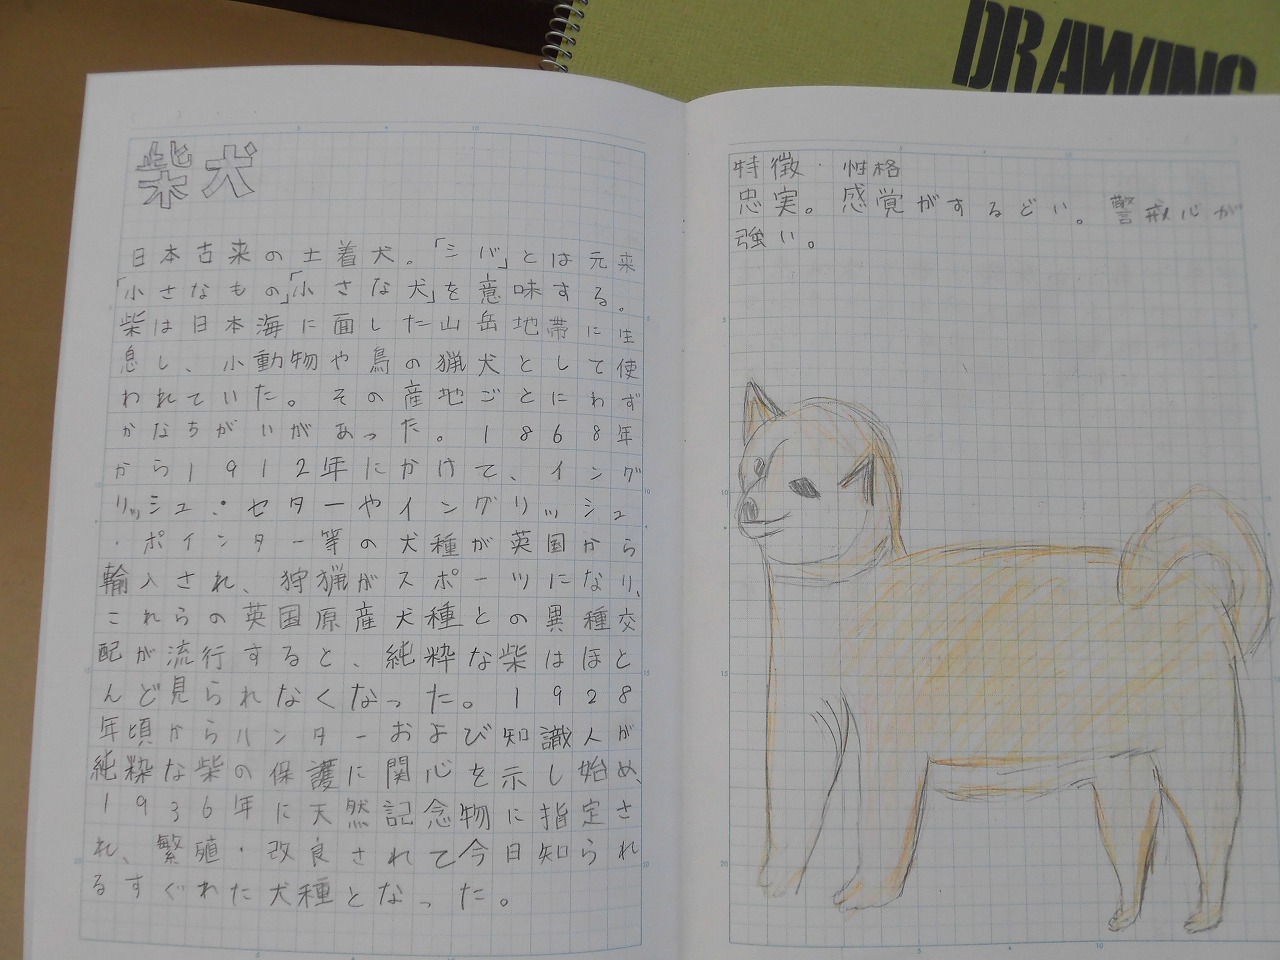 DRAWING
柴犬
日本古来の土着犬。「シバ」とは元来
「小さなもの」「小さな犬」を意味する。
柴は日本海に面した山岳地帯に生
息し、小動物や鳥の猟犬として使
われていた。その産地ごとにわず
かなちがいがあった。1868年
から1912年にかけて、イング
リッシュ・セターやイングリッシュ
・ポインター等の犬種が英国から
輸入され、狩猟がスポーツになり、
これらの英国原産犬種との異種交
配が流行すると、純粋な柴はほと
んど見られなくなった。1928
年頃からハンターおよび知識人が
純粋な柴の保護に関心を示し始め、
1936年に天然記念物に指定さ
れ、繁殖・改良されて今日知られ
るすぐれた犬種となった。
特徴・性格
忠実。感覚がするどい。警戒心が
強い。